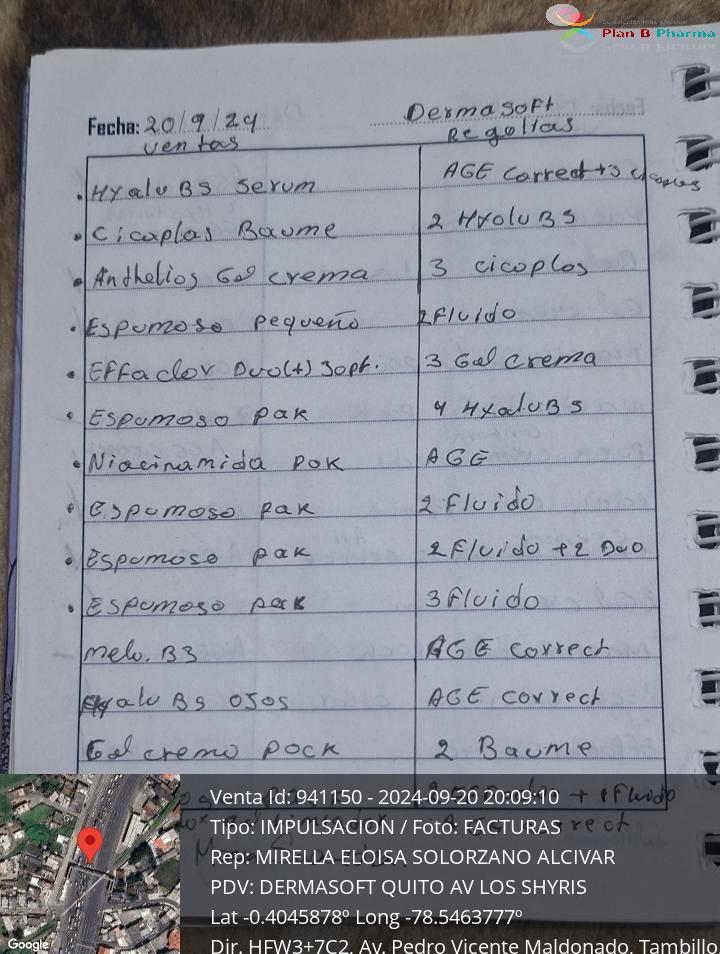 Plan B Pharma
Fecha: 20/9/24 DermaSoft
ventas Regalias
. Hyalu B5 Serum AGE Correct + 3 cicaplas
. Cicaplas Baume 2 Hyalu B5
. Anthelios Gel crema 3 cicaplas
. Espumoso pequeño 2 Fluido
. Effaclar Duo(+) 30pt. 3 Gel crema
. Espumoso pak 4 Hyalu B5
. Niacinamida pak AGE
. Espumoso pak 2 Fluido
. Espumoso pak 2 Fluido + 2 Duo
. Espumoso pak 3 Fluido
Mela. B3 AGE correct
Hyalu B5 ojos AGE correct
Gel crema pack 2 Baume
+ 1 Fluido
Venta Id: 941150 - 2024-09-20 20:09:10
Tipo: IMPULSACION / Foto: FACTURAS
Rep: MIRELLA ELOISA SOLORZANO ALCIVAR
PDV: DERMASOFT QUITO AV LOS SHYRIS
Lat -0.4045878º Long -78.5463777º
Dir. HFW3+7C2, Av. Pedro Vicente Maldonado, Tambillo
Google